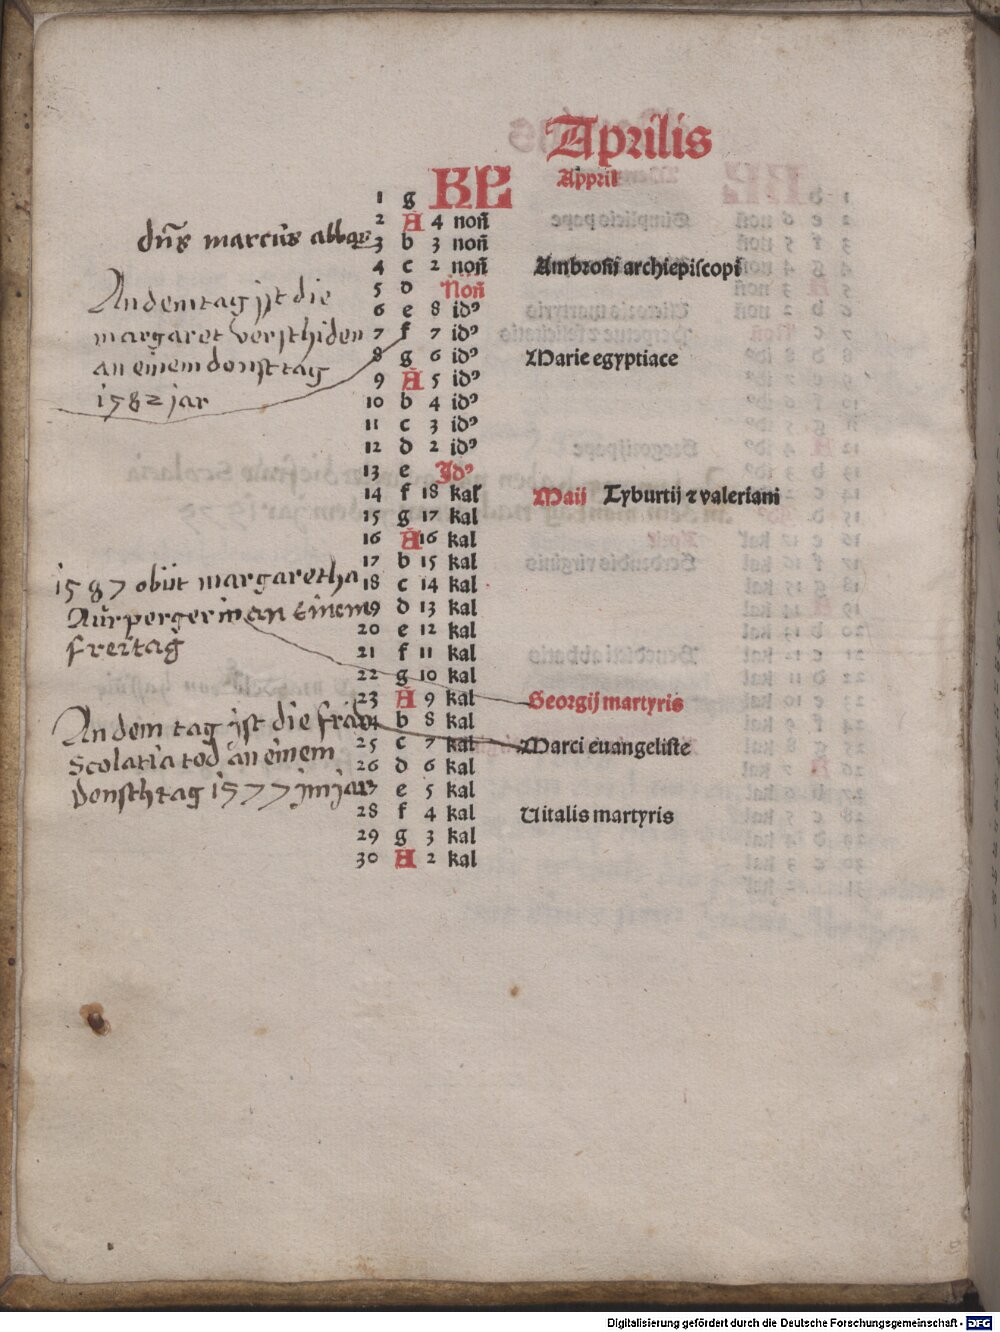 Aprilis
Appril
1 g KL
2 A 4 noñ
dñs marcus abbas 3 b 3 noñ
4 c 2 noñ Ambrosii archiepiscopi
An dem tag jst die 5 d Noñ
6 e 8 idꝰ
margaret verschiden 7 f 7 idꝰ
an einem donstag 8 g 6 idꝰ Marie egyptiace
9 A 5 idꝰ
1582 jar 10 b 4 idꝰ
11 c 3 idꝰ
12 d 2 idꝰ
13 e Jdꝰ
14 f 18 kal Maij Tyburtij ⁊ valeriani
15 g 17 kal
16 A 16 kal
17 b 15 kal
1587 obiit margaretha 18 c 14 kal
Nürpergerin an einem 19 d 13 kal
20 e 12 kal
freitag 21 f 11 kal
22 g 10 kal
23 A 9 kal Georgij martyris
An dem tag jst die fraw 24 b 8 kal
Scolatia tod an einem 25 c 7 kal Marci euangeliste
26 d 6 kal
donschtag 1577 jm jar 27 e 5 kal
28 f 4 kal Uitalis martyris
29 g 3 kal
30 A 2 kal
Digitalisierung gefördert durch die Deutsche Forschungsgemeinschaft - DFG